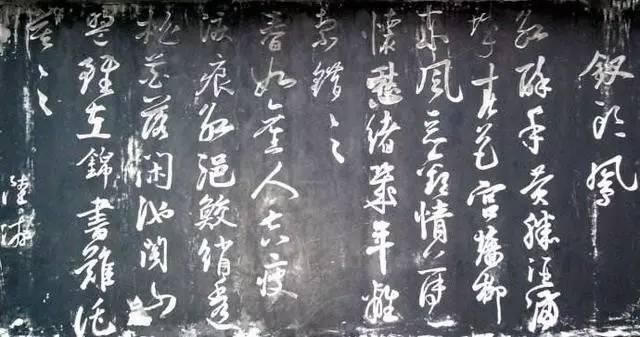 釵頭鳳
紅酥手黄縢酒滿
城春色宮墻柳
東風惡歡情薄一
懷愁緒幾年離
索錯〻〻
春如舊人空瘦
淚痕紅浥鮫綃透
桃花落閑池閣山
盟雖在錦書難托
莫〻〻
陸游